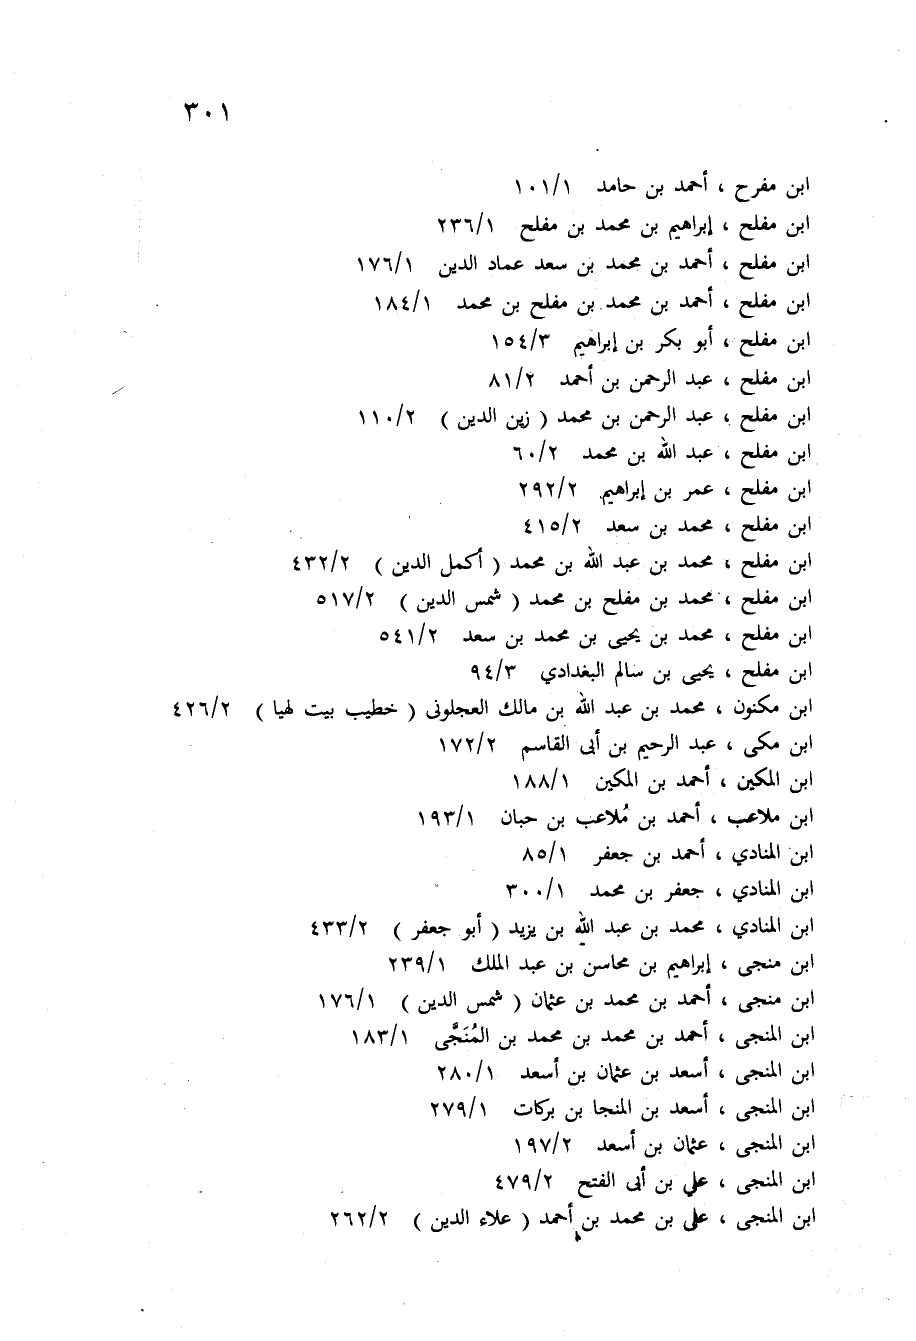 ٣٠١
ابن مفرح ، أحمد بن حامد ١٠١/١
ابن مفلح ، إبراهيم بن محمد بن مفلح ٢٣٦/١
ابن مفلح ، أحمد بن محمد بن سعد عماد الدين ١٧٦/١
ابن مفلح ، أحمد بن محمد بن مفلح بن محمد ١٨٤/١
ابن مفلح ، أبو بكر بن إبراهيم ١٥٤/٣
ابن مفلح ، عبد الرحمن بن أحمد ٨١/٢
ابن مفلح ، عبد الرحمن بن محمد ( زين الدين ) ١١٠/٢
ابن مفلح ، عبد الله بن محمد ٦٠/٢
ابن مفلح ، عمر بن إبراهيم ٢٩٢/٢
ابن مفلح ، محمد بن سعد ٤١٥/٢
ابن مفلح ، محمد بن عبد الله بن محمد ( أكمل الدين ) ٤٣٢/٢
ابن مفلح ، محمد بن مفلح بن محمد ( شمس الدين ) ٥١٧/٢
ابن مفلح ، محمد بن يحيى بن محمد بن سعد ٥٤١/٢
ابن مفلح ، يحيى بن سالم البغدادي ٩٤/٣
ابن مكنون ، محمد بن عبد الله بن مالك العجلونى ( خطيب بيت لهيا ) ٤٢٦/٢
ابن مكى ، عبد الرحيم بن أبى القاسم ١٧٢/٢
ابن المكين ، أحمد بن المكين ١٨٨/١
ابن ملاعب ، أحمد بن مُلاعب بن حبان ١٩٣/١
ابن المنادي ، أحمد بن جعفر ٨٥/١
ابن المنادي ، جعفر بن محمد ٣٠٠/١
ابن المنادي ، محمد بن عبد الله بن يزيد ( أبو جعفر ) ٤٣٣/٢
ابن منجى ، إبراهيم بن محاسن بن عبد الملك ٢٣٩/١
ابن منجى ، أحمد بن محمد بن عثمان ( شمس الدين ) ١٧٦/١
ابن المنجى ، أحمد بن محمد بن محمد بن المُنَجَّى ١٨٣/١
ابن المنجى ، أسعد بن عثمان بن أسعد ٢٨٠/١
ابن المنجى ، أسعد بن المنجا بن بركات ٢٧٩/١
ابن المنجى ، عثمان بن أسعد ١٩٧/٢
ابن المنجى ، علي بن أبى الفتح ٤٧٩/٢
ابن المنجى ، على بن محمد بن أحمد ( علاء الدين ) ٢٦٢/٢